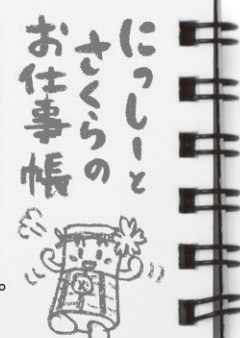 にっしーと
さくらの
お仕事帳